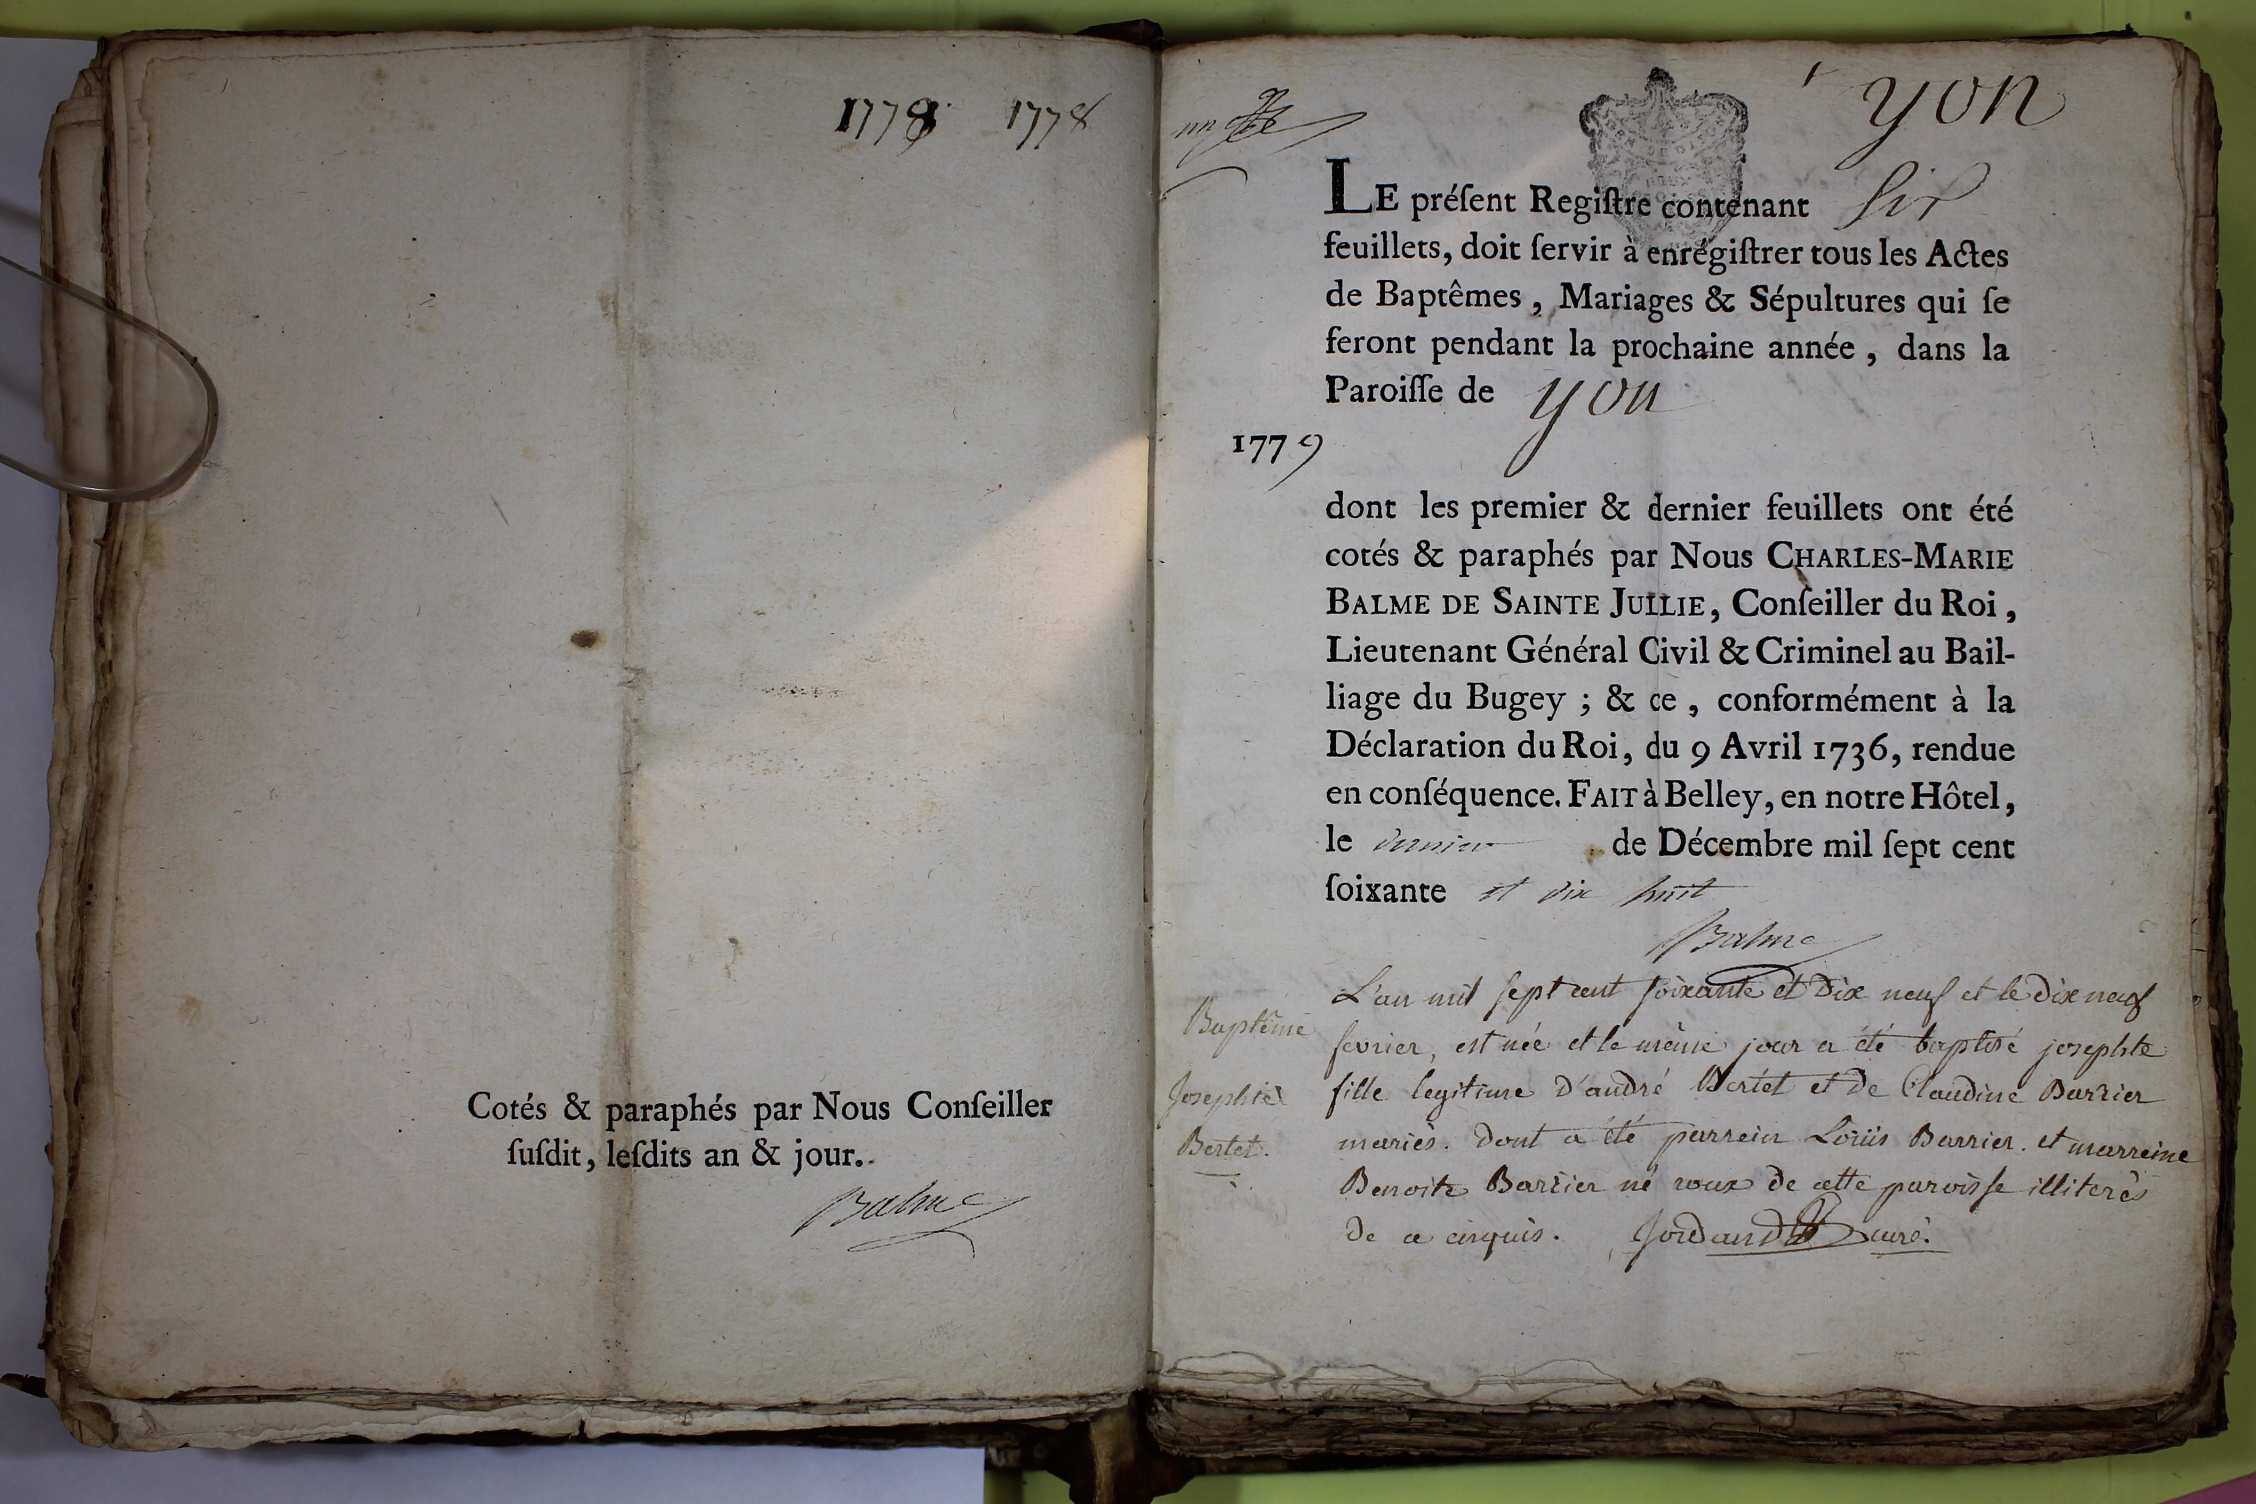 1778 1778
Cotés & paraphés par Nous Conſeiller
ſuſdit, leſdits an & jour.
Balme
yon
LE préſent Regiſtre contenant six
feuillets, doit ſervir à enrégiſtrer tous les Actes
de Baptêmes, Mariages & Sépultures qui ſe
feront pendant la prochaine année, dans la
Paroiſſe de yon
1779
dont les premier & dernier feuillets ont été
cotés & paraphés par Nous CHARLES-MARIE
BALME DE SAINTE JULLIE, Conſeiller du Roi,
Lieutenant Général Civil & Criminel au Bail-
liage du Bugey ; & ce, conformément à la
Déclaration du Roi, du 9 Avril 1736, rendue
en conſéquence. FAIT à Belley, en notre Hôtel,
le dernier de Décembre mil ſept cent
ſoixante et dix huit
Balme
Baptême
Josephte
Bertet.
L'an mil sept cent soixante et dix neuf et le dix neuf
fevrier, est née et le même jour a été baptisé josephte
fille legitime d'andré Bertet et de Claudine Barrier
mariés. dont a été parrein Loüis Barrier. et marreine
Benoite Barrier né roux de cette paroisse illiterés
de ce enquis. Jordan curé.